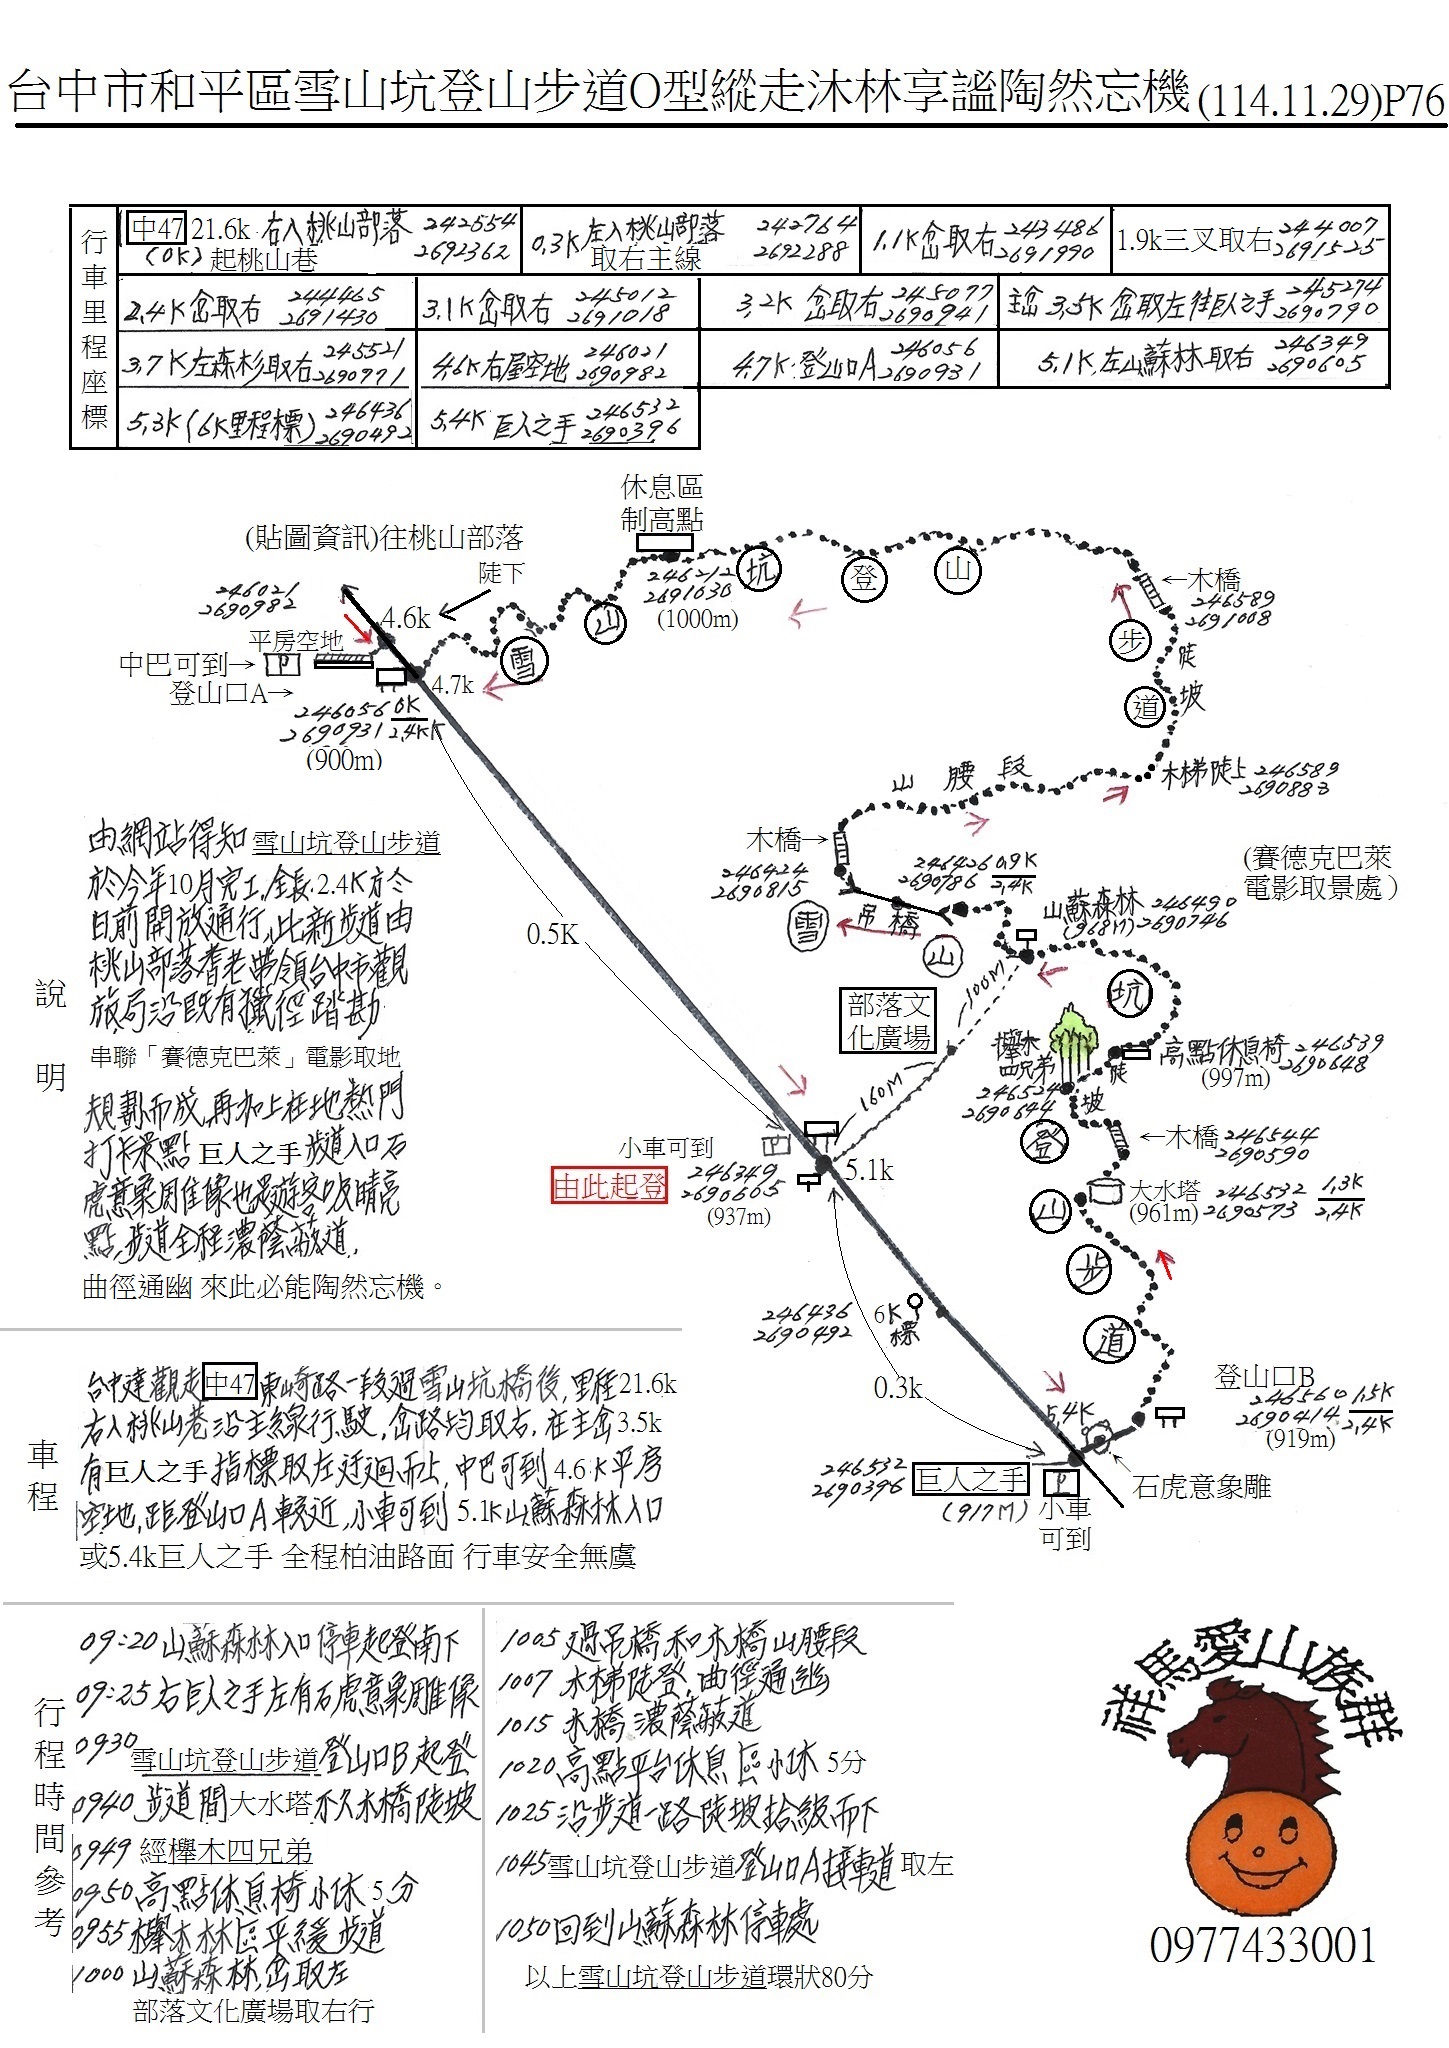 台中市和平區雪山坑登山步道O型縱走沐林享謐陶然忘機(114.11.29)P76
行車里程座標
中47 21.6k 右入桃山部落 242554
(0K) 起桃山巷 2692362
0.3K左入桃山部落 242764
取右主線 2692288
1.1K岔取右 243486
2691990
1.9k三叉取右 244007
2691525
2.4K岔取右 244465
2691430
3.1K岔取右 245012
2691018
3.2K 岔取右 245077
2690941
主岔 3.5K 岔取左往巨人之手 245274
2690790
3.7K左森杉取右 245521
2690771
4.6K右屋空地 246021
2690982
4.7K.登山口A 246056
2690931
5.1K.左山蘇林取右 246349
2690605
5.3K(6K里程標) 246436
2690492
5.4K 巨人之手 246532
2690396
休息區
制高點
246212
2691030
(1000m)
(貼圖資訊)往桃山部落
陡下
246021
2690982
4.6k
平房空地
中巴可到→
P
登山口A→
4.7k
246056 0K
2690931 2.4K
(900m)
雪山坑登山步道
←木橋
246589
2691008
陡坡
木梯陡上 246589
2690883
山腰段
木橋→
246424
2690815
246426 0.9K
2690786 2.4K
吊橋
(賽德克巴萊
電影取景處)
山蘇森林 246490
(968M) 2690746
雪山坑登山步道
100M
部落文
化廣場
160M
櫸木
四兄弟
246524
2690644
陡坡
高點休息椅 246539
(997m) 2690648
←木橋 246544
2690590
大水塔 246532 1.3K
(961m) 2690573 2.4K
0.5K
小車可到
P
由此起登
246349
2690605
(937m)
5.1k
246436
2690492
6K
標
0.3k
登山口B
246560 1.5K
2690414 2.4K
(919m)
5.4K
246532
2690396
巨人之手
(917M)
P
小車
可到
石虎意象雕
說明
由網站得知 雪山坑登山步道
於今年10月完工,全長.2.4K方冬
日前開放通行,此新步道由
桃山部落耆老帶領台中市觀
旅局沿既有獵徑踏勘
串聯「賽德克巴萊」電影取地
規劃而成,再加上在地熱門
打卡景點 巨人之手 步道入口石
虎意象周雕像也是遊客吸睛亮
點,步道全程濃蔭蔽道,
曲徑通幽 來此必能陶然忘機。
車程
台中達觀走中47東崎路一段過雪山坑橋後,里程21.6k
右入桃山巷沿主線行駛,岔路均取右,在主岔3.5k
有巨人之手指標取左迂迴而上,中巴可到4.6K平房
空地,距登山口A較近,小車可到 5.1K山蘇森林入口
或5.4k巨人之手 全程柏油路面 行車安全無虞
行程時間參考
09:20山蘇森林入口停車起登南下
09:25右巨人之手左有石虎意象周雕像
0930雪山坑登山步道登山口B起登
0940 步道間大水塔不久木橋陡坡
0949 經櫸木四兄弟
0950高點休息椅小休 5分
0955櫸木林區平緩步道
1000山蘇森林,岔取左
部落文化廣場取右行
1005 過吊橋和木橋山腰段
1007 木梯陡登,曲徑通幽
1015 木橋 濃蔭蔽道
1020高點平台休息區小休 5分
1025沿步道一路陡坡拾級而下
1045雪山坑登山步道登山口A接車道 取左
1050回到山蘇森林停車處
以上雪山坑登山步道環狀80分
祥馬愛山族群
0977433001